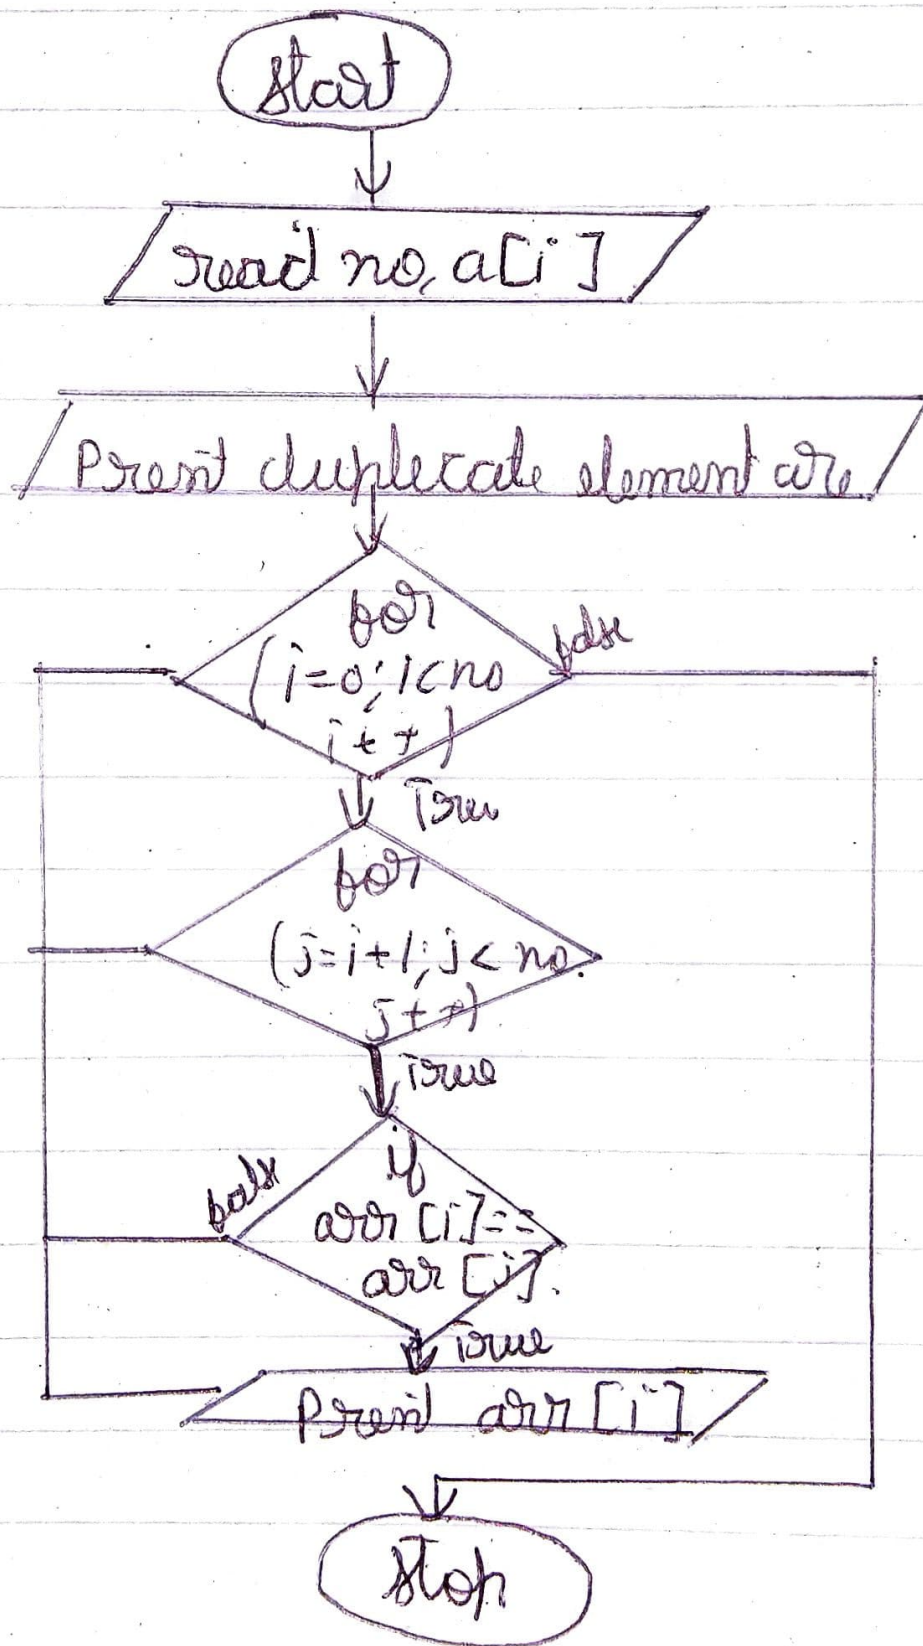 start
read no, a[i]
Print duplicate element are
for
(i=0; i<no
i++)
false
True
for
(j=i+1; j< no.
j++)
True
if
false
arr [i]==
arr [j].
True
Print arr [i]
stop